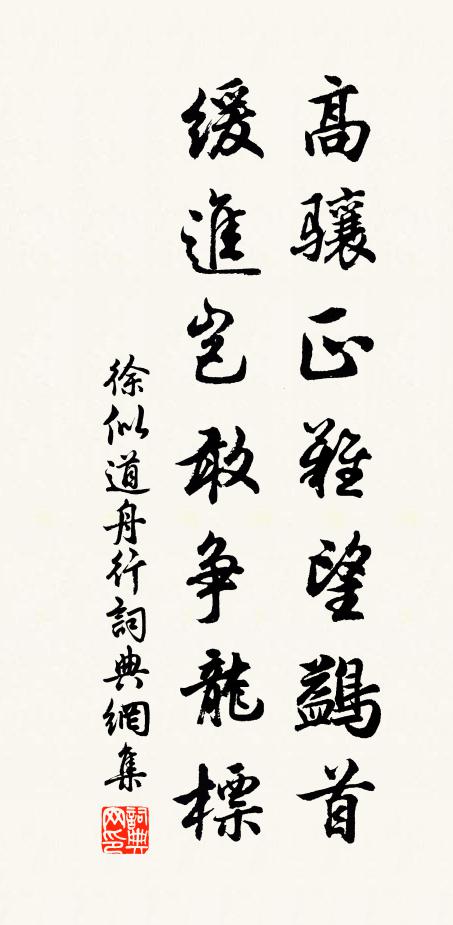 高驤正難望鷁首
緩進豈敢爭龍標
徐似道舟行詞典網集
詞典网印